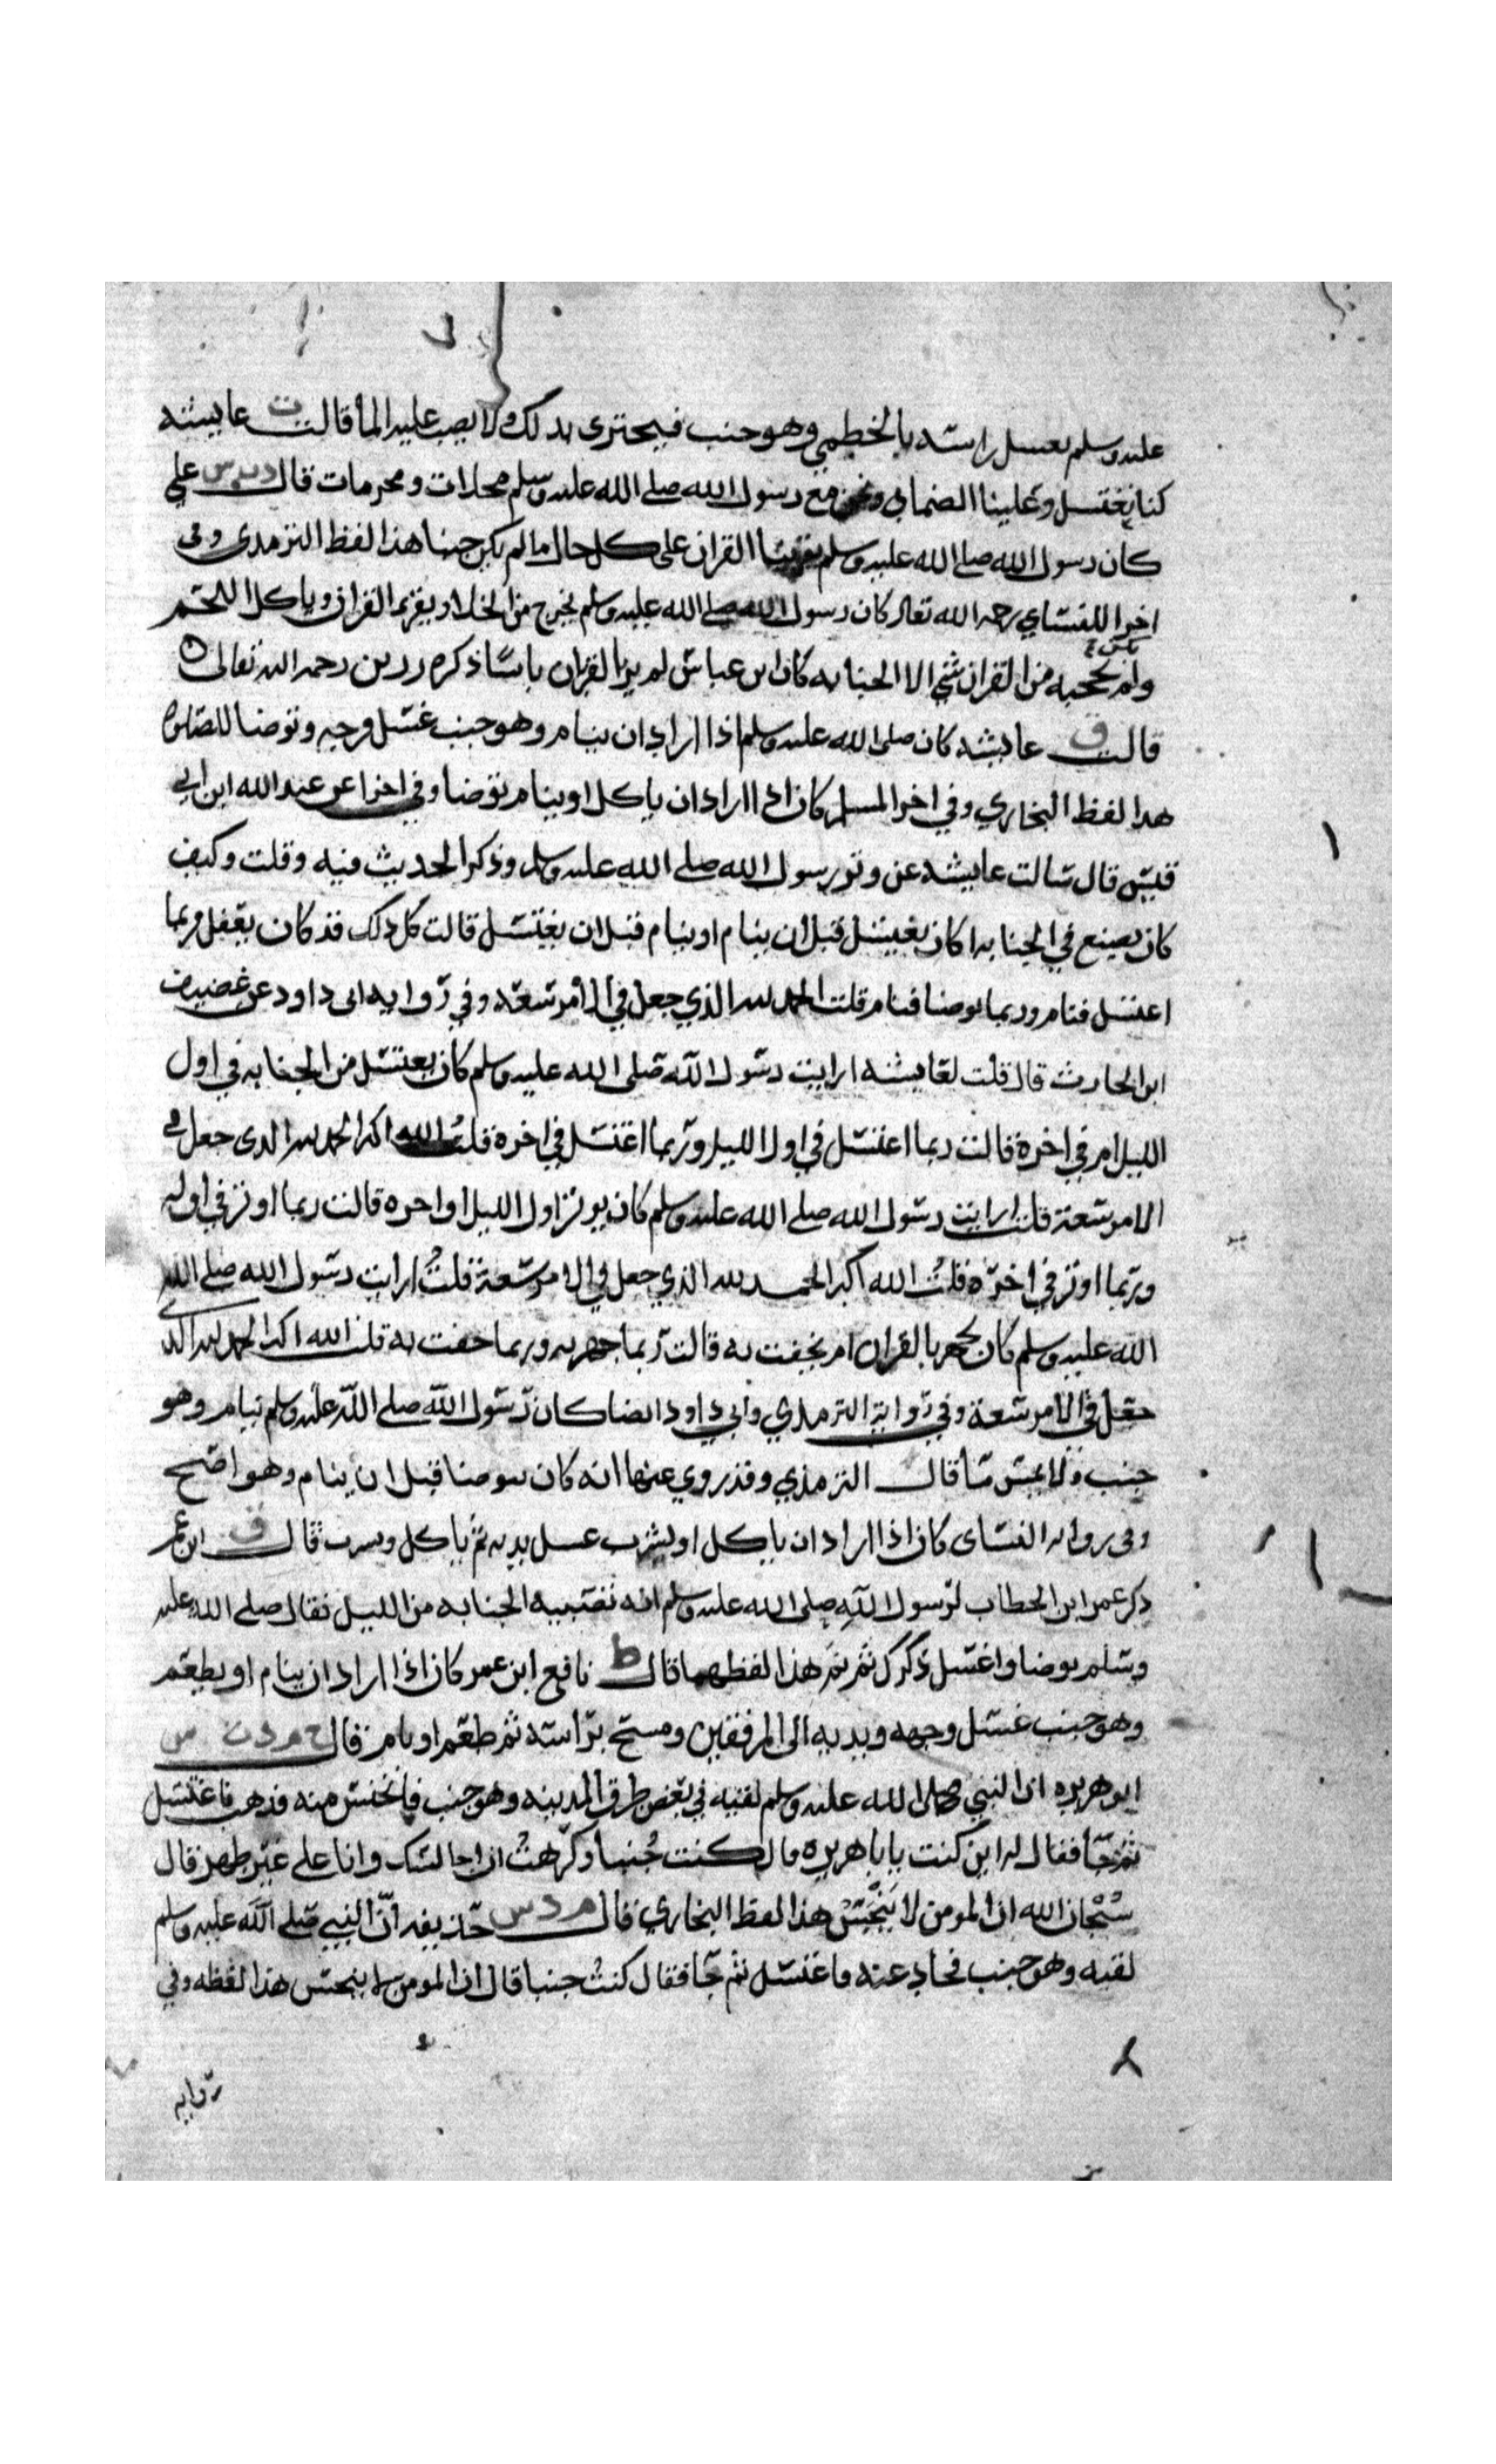 عليه وسلم يغسل راسه بالخطمي وهو جنب فيجتزى بدلك ولا يصب عليه الما قالت ت عايشه
كنا نغتسل وعلينا الضماد ونحن مع رسول الله صلى الله عليه وسلم محلات ومحرمات قال د ت س علي
كان رسول الله صلى الله عليه وسلم يقرينا القران على كل حال ما لم يكن جنبا هذا لفظ الترمذي وفي
اخرا للنساي رحمه الله تعالى كان رسول الله صلى الله عليه وسلم يخرج من الخلاء ويقرا القران وياكل اللحم
ولم يحجبه من القران شي الا الجنابه كان ابن عباس لم ير بالقران باسا ذكره رزين رحمه الله تعالى ٥
قالت ق عايشه كان صلى الله عليه وسلم اذا اراد ان ينام وهو جنب غسل فرجه وتوضا للصلوة
هذا لفظ البخاري وفي اخرا لمسلم كان اذا اراد ان ياكل او ينام توضا وفي اخرا عن عبد الله ابن ابي
قيس قال سالت عايشه عن وتر رسول الله صلى الله عليه وسلم وذكر الحديث فيه وقلت وكيف
كان يصنع في الجنابه اكان يغتسل قبل ان ينام او ينام قبل ان يغتسل قالت كل ذلك قد كان يفعل ربما
اغتسل فنام وربما توضا فنام قلت الحمد لله الذي جعل في الامر سعه وفي روايه ابي داود عن غضيف
ابن الحارث قال قلت لعايشه ارايت رسول الله صلى الله عليه وسلم كان يغتسل من الجنابه في اول
الليل ام في اخره قالت ربما اغتسل في اول الليل وربما اغتسل في اخره قلت الله اكبر الحمد لله الذي جعل في
الامر سعة قلت ارايت رسول الله صلى الله عليه وسلم كان يوتر اول الليل او اخره قالت ربما اوتر في اوله
وربما اوتر في اخره قلت الله اكبر الحمد لله الذي جعل في الامر سعة قلت ارايت رسول الله صلى الله
الله عليه وسلم كان يجهر بالقران ام يخفت به قالت ربما جهر به وربما خفت به قلت الله اكبر الحمد لله الذي
جعل في الامر سعة وفي رواية الترمذي وابي داود ايضا كان رسول الله صلى الله عليه وسلم ينام وهو
جنب ولا يمس ما قال الترمذي وقد روي عنها انه كان يتوضا قبل ان ينام وهو اصح
وفي روايه النساي كان اذا اراد ان ياكل او يشرب غسل يديه ثم ياكل ويشرب قال ق ابن عمر
ذكر عمر ابن الخطاب لرسول الله صلى الله عليه وسلم انه تصيبه الجنابه من الليل فقال صلى الله عليه
وسلم توضا واغسل ذكرك ثم نم هذا لفظهما قال ط نافع ابن عمر كان اذا اراد ان ينام او يطعم
وهو جنب غسل وجهه ويديه الى المرفقين ومسح براسه ثم طعم او نام قال خ م د ت س
ابو هريره ان النبي صلى الله عليه وسلم لقيه في بعض طرق المدينه وهو جنب فانخنس منه فذهب فاغتسل
ثم جا فقال له اين كنت يا با هريره قال كنت جنبا وكرهت ان اجالسك وانا على غير طهر قال
سبحان الله ان المومن لا ينجس هذا لفظ البخاري قال م د س حذيفه ان النبي صلى الله عليه وسلم
لقيه وهو جنب فحاد عنه فاغتسل ثم جا فقال كنت جنبا قال ان المومن لا ينجس هذا لفظه وفي
روايه